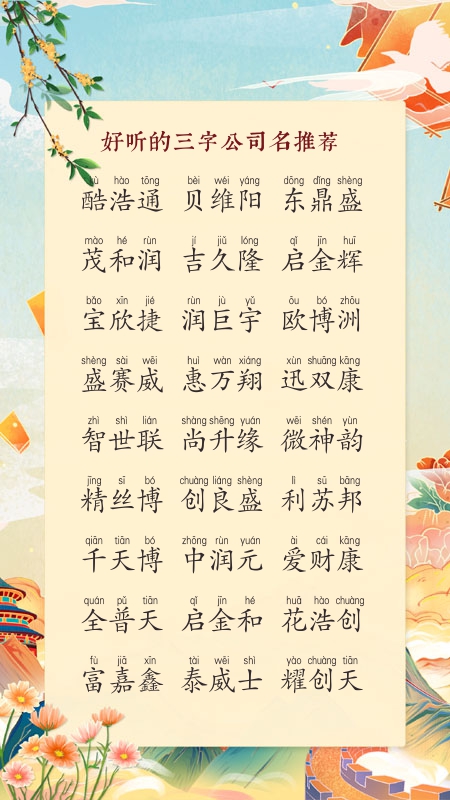 好听的三字公司名推荐
kù hào tōng bèi wéi yáng dōng dǐng shèng
酷浩通 贝维阳 东鼎盛
mào hé rùn jí jiǔ lóng qǐ jīn huī
茂和润 吉久隆 启金辉
bǎo xīn jié rùn jù yǔ ōu bó zhōu
宝欣捷 润巨宇 欧博洲
shèng sài wēi huì wàn xiáng xùn shuāng kāng
盛赛威 惠万翔 迅双康
zhì shì lián shàng shēng yuán wēi shén yùn
智世联 尚升缘 微神韵
jīng sī bó chuàng liáng shèng lì sū bāng
精丝博 创良盛 利苏邦
qiān tiān bó zhōng rùn yuán ài cái kāng
千天博 中润元 爱财康
quán pǔ tiān qǐ jīn hé huā hào chuàng
全普天 启金和 花浩创
fù jiā xīn tài wēi shì yào chuàng tiān
富嘉鑫 泰威士 耀创天